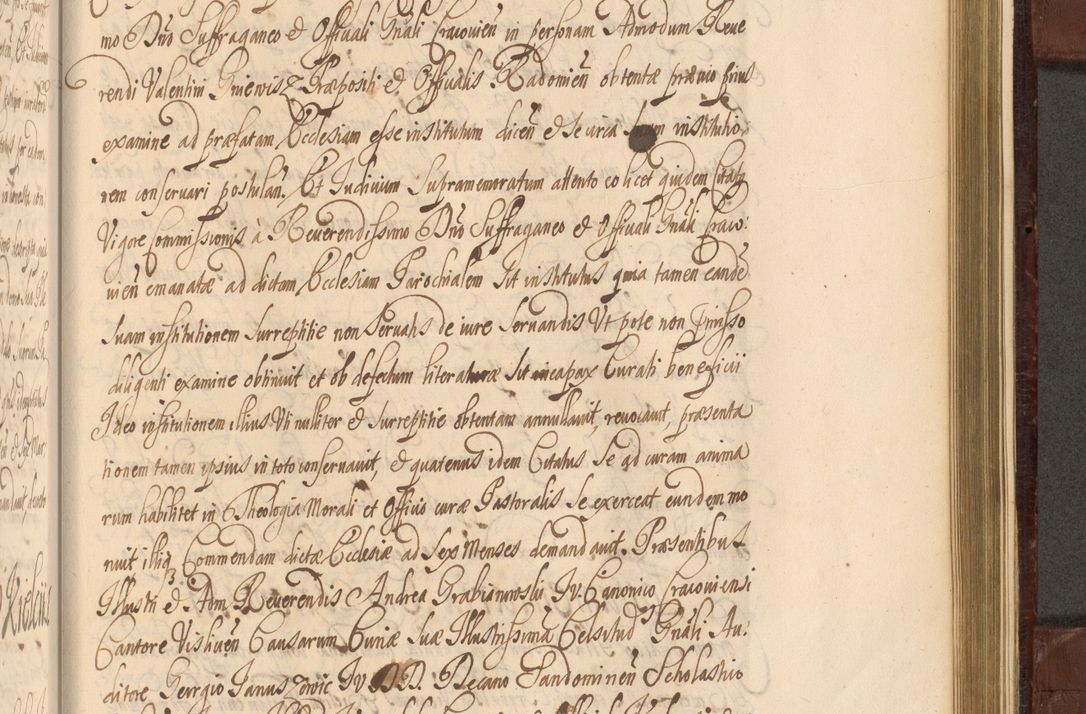 mo Dno Suffraganeo et Officiali Gnali Cracovien in personam Admodum Reve
rendi Valentini Gniewisz Præpositi et Officialis Radomien obtentæ prævio prius
examine ad præfatam Ecclesiam esse institutum dicen et se circa suam institutio
nem conservari postulan. Et Iudicium supramemoratum attento eo licet quidem citatus
Vigore Commissionis à Reverendissimo Dno Suffraganeo et Officiali Gnali Craco:
vien emanatæ ad dictam Ecclesiam Parochialem sit institutus quia tamen eande
suam institutionem surreptitie non servatis de iure servandis Ut pote non præmisso
diligenti examine obtinuit et ob defectum literaturæ sit incapax Curati beneficii
Ideo institutionem illius Uti nulliter et surreptitie obtentam annullavit, revocavit, præsenta
tionem tamen ipsius in toto conservavit, et quatenus idem Citatus se ad curam anima
rum habilitet in Theologia Morali et Officio curæ Pastoralis se exerceat eundem mo
nuit illiq Commendam dictæ Ecclesiæ ad sex Menses demandavit. Præsentibus
Illustri et Adm Reverendis Andrea Grabianowski Iv. Canonico Cracoviensi
Cantore Vislicen Causarum Curiæ Suæ Illustrissimæ Celsitud Gnali Au:
ditore Georgio Januszowic Iv DD. Decano Sandomirien Scholastico